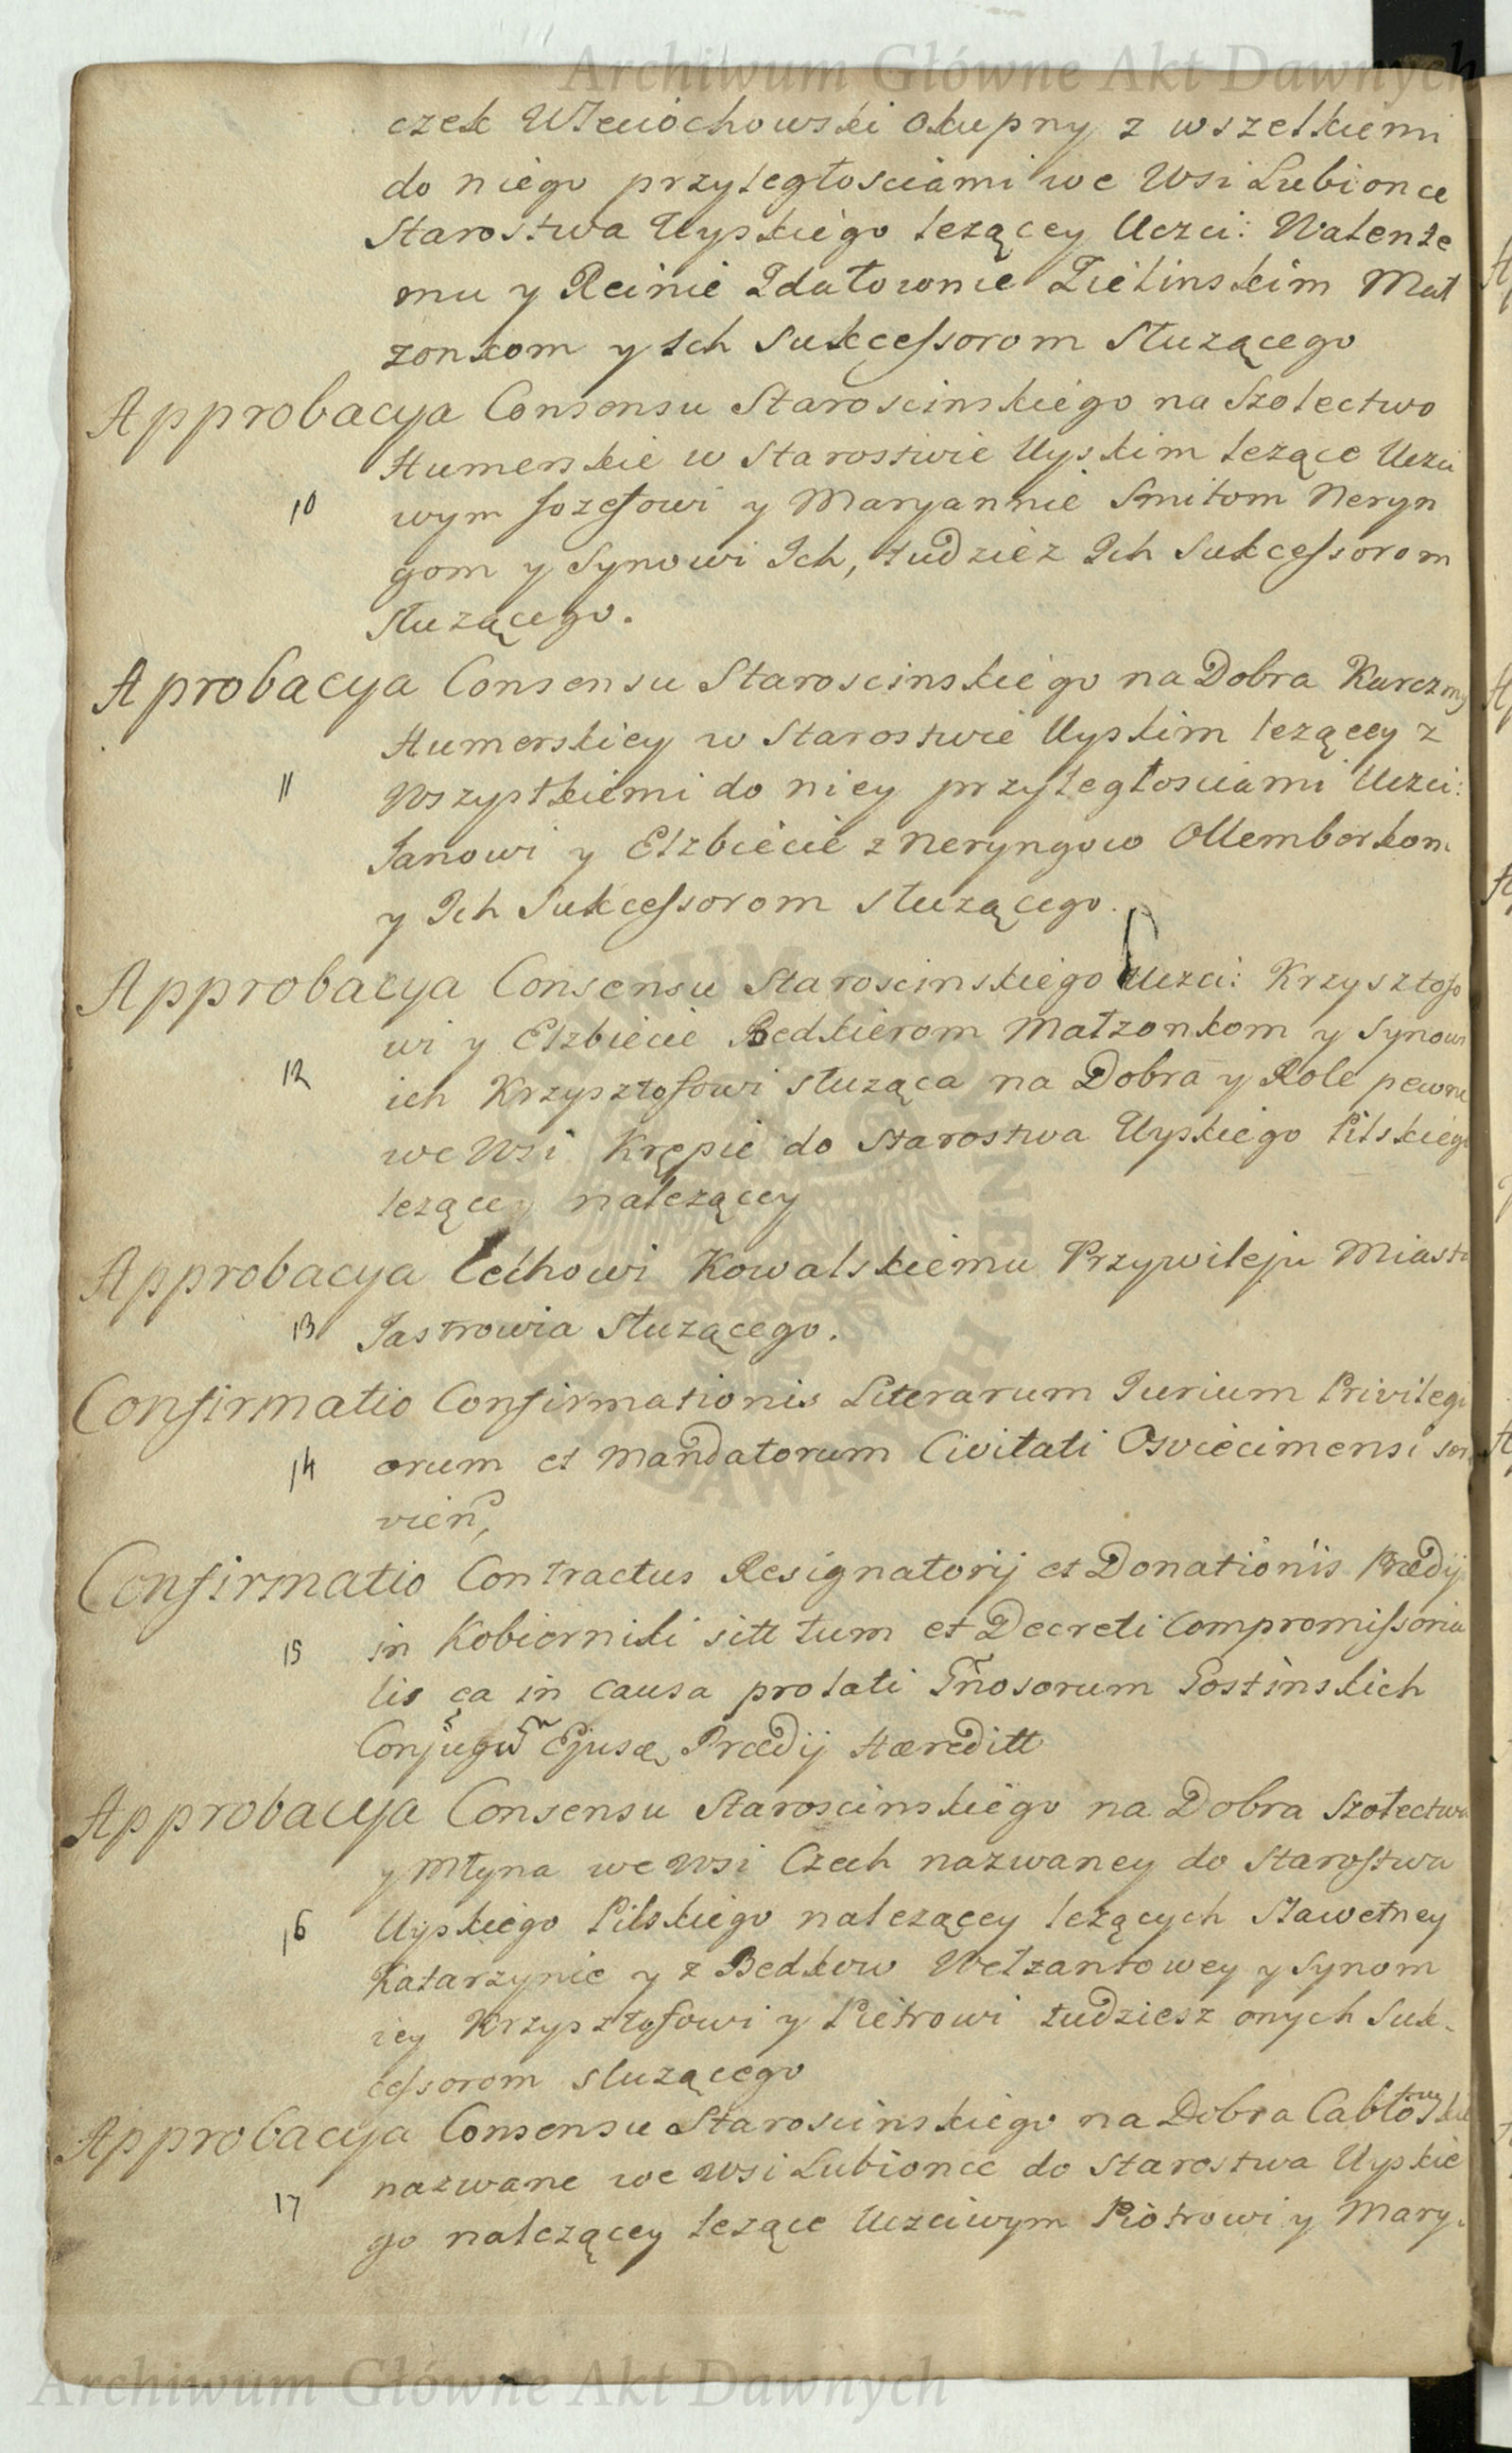 Archiwum Główne Akt Dawnych
czek Wieciochowski okupny z wszelkiemi
do niego przyległosciami we Wsi Lubionce
Starostwa Uyskiego leżącey Uczci: Walente
mu y Reinie Zdatownie Zielinskim Mał
zonkom y Ich Sukcessorom służącego
Approbacya Consensu Staroscinskiego na Szolectwo
Humerskie w Starostwie Uyskim leżące Uczci
10 wym Jozefowi y Maryannie Smitom Neryn
gom y Synowi Ich, tudzież Ich Sukcessorom
służącego.
Aprobacya Consensu Staroscinskiego na Dobra Karczmy
Humerskiey w Starostwie Uyskim leżącey z
11 Wszystkiemi do niey przyległosciami Uczci:
Janowi y Elzbiecie z Neryngow Ollemborkom
y Ich Sukcessorom służącego.
Approbacya Consensu Staroscinskiego Uczci: Krzysztofo
wi y Elzbiecie Bedkierom Małzonkom y Synowi
12 ich Krzysztofowi służąca na Dobra y Role pewne
we Wsi Krępie do Starostwa Uyskiego Pilskiego
leżącey należącey
Approbacya Cechowi Kowalskiemu Przywileju Miasta
13 Jastrowia służącego.
Confirmatio Confirmationis Literarum Jurium Privilegi
14 orum et Mandatorum Civitati Osviecimensi ser
vien,
Confirmatio Contractus Resignatorij et Donationis Prædij
15 in Kobierniki sitt tum et Decreti Compromissoria
lis ea in causa prolati Gnosorum Gostinskich
Conjugu Ejusd Prædij Hæreditt
Approbacya Consensu Staroscinskiego na Dobra Szołectwa
y Młyna we Wsi Czech nazwaney do Starostwa
16 Uyskiego Pilskiego należącey leżących Sławetney
Katarzynie y z Bedkow Welzantowey y Synom
iey Krzysztofowi y Pietrowi tudziesz onych Suk-
cessorom służącego
Approbacya Consensu Staroscinskiego na Dobra Cabłowskie
nazwane we Wsi Lubionce do Starostwa Uyskie
17 go należącey leżące Uczciwym Piotrowi y Mary-
Archiwum Główne Akt Dawnych